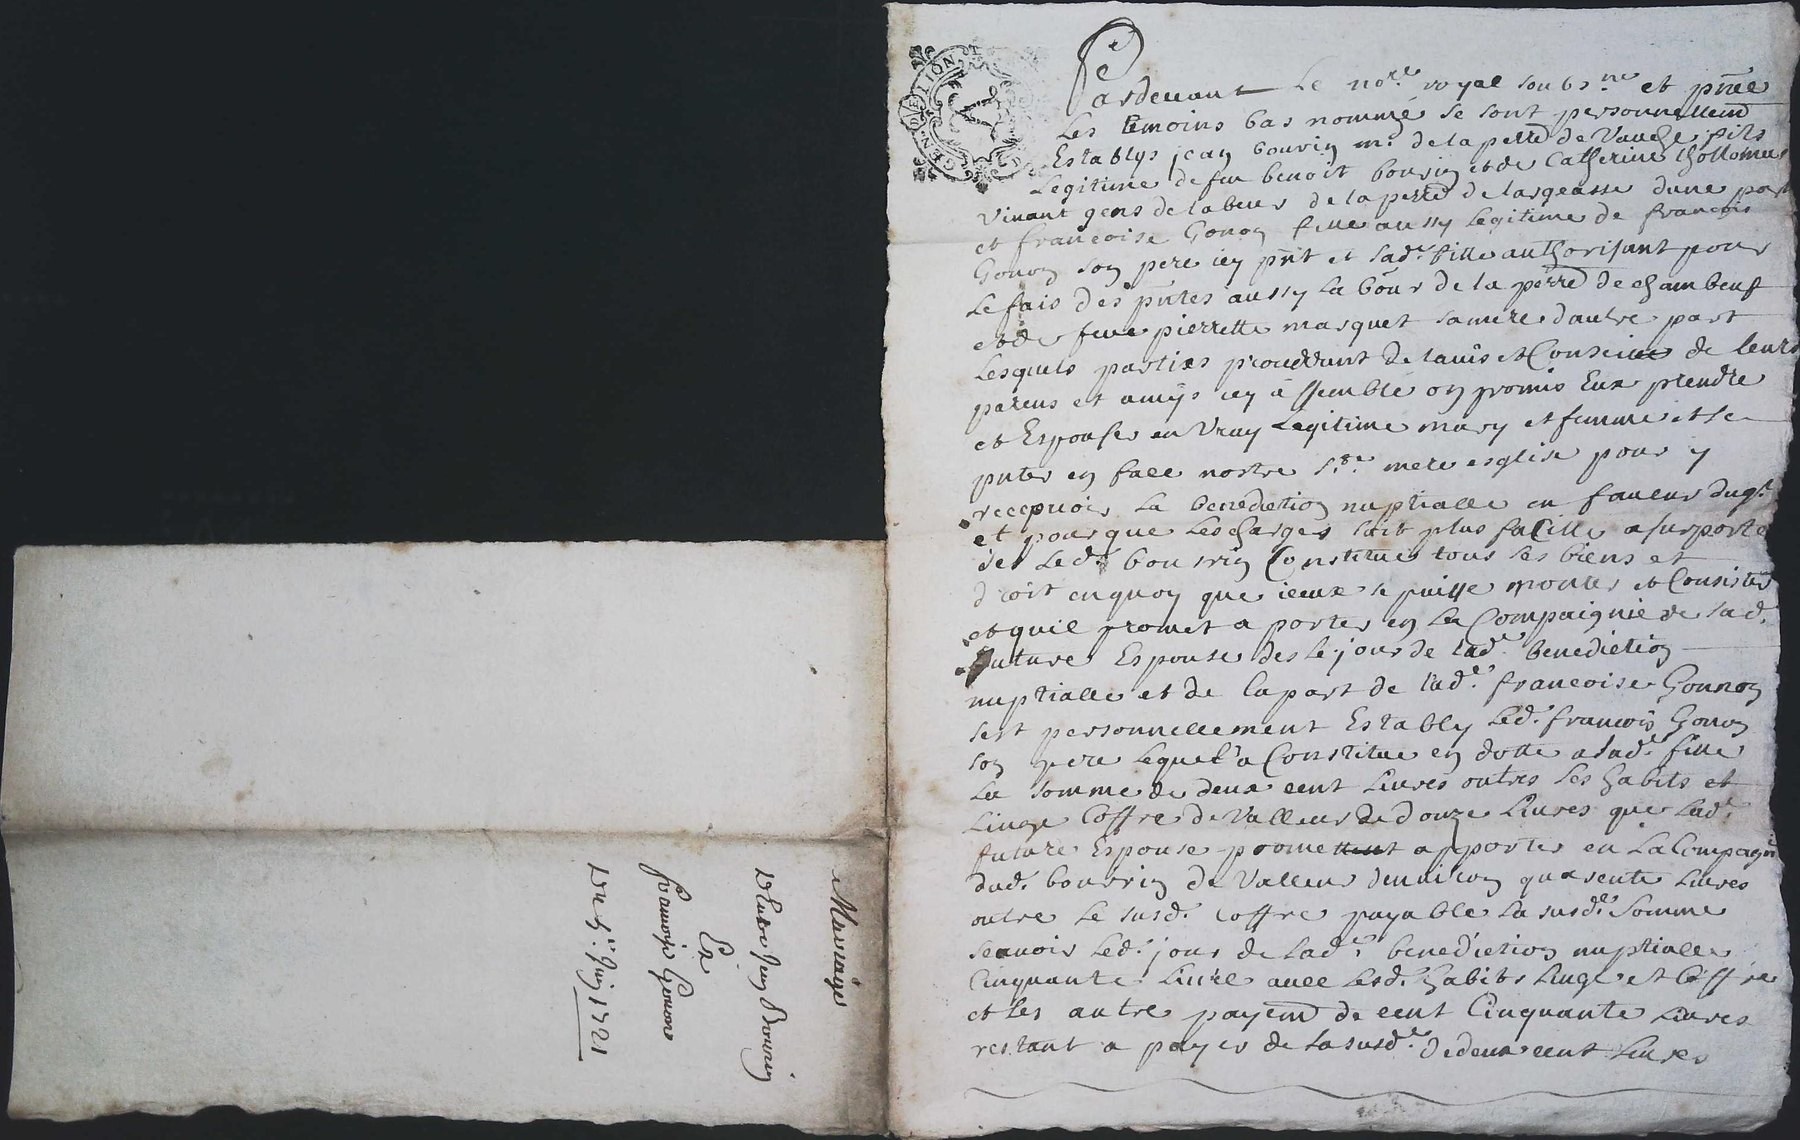 GEN. DE LION
Pardeuant Le no.re royal soubs.ne et pñce
Les temoins bas nommé se sont personnellemt
Establys jean bouvin m.r de la perre de Vauche fils
Legitime de feu benoit bourin et de Catherine thollomet
vivant gens de labeur de la perre de largeasse dune part
et francoise Gonon fille aussy Legitime de francois
Gonon son pere icy pñt et lad.e fille authorisant pour
Le fais des pñtes aussy Labour de la perre de chambeuf
et de feue pierrette masquet sa mere dautre part
Lesquels parties procedant de lauis et Conseil de leurs
parens et amys icy assemblé on promis Eux prendre
et Espouser en vray Legitime mary et femme et se
pñter en face nostre s.te mere esglise pour y
recepuoir La benediction nuptialle en faueur duq.l
et pour que Les charges soit plus facille a suporte
de Led.t bourin Constitue tous ses biens et
droit en quoy que iceux se puisse monter et Consister
et quil promet a porter en La Compaignie de lad.
future Espouse des le jour de lad.e benediction
nuptialle et de la part de lad.e francoise Gonnon
sest personnellement Estably Led.t francois Gonon
son pere Lequel a Constitue en dotte a lad.e fille
La somme de deux cent Liures outres Les habits et
Linge Coffre de Valleur de douze Liures que Lad.e
future Espouse promettent apporter en La Compagni
dud.t bourrin de Valleur denuiron quarente Liures
outre Le susd.t Coffre payable La susd.e Somme
scauoir Led.t jour de Lad.e benediction nuptialle
Cinquante Liure auec Lesd.t habits Linge et Coffre
et Les autre payemt de cent Cinquante Liures
restant a payer de La susd.e de deux cent Liures
Marriage
D'Entre Jean Bourin
Et
Francoise Gonon
Du 5.e Juin 1721